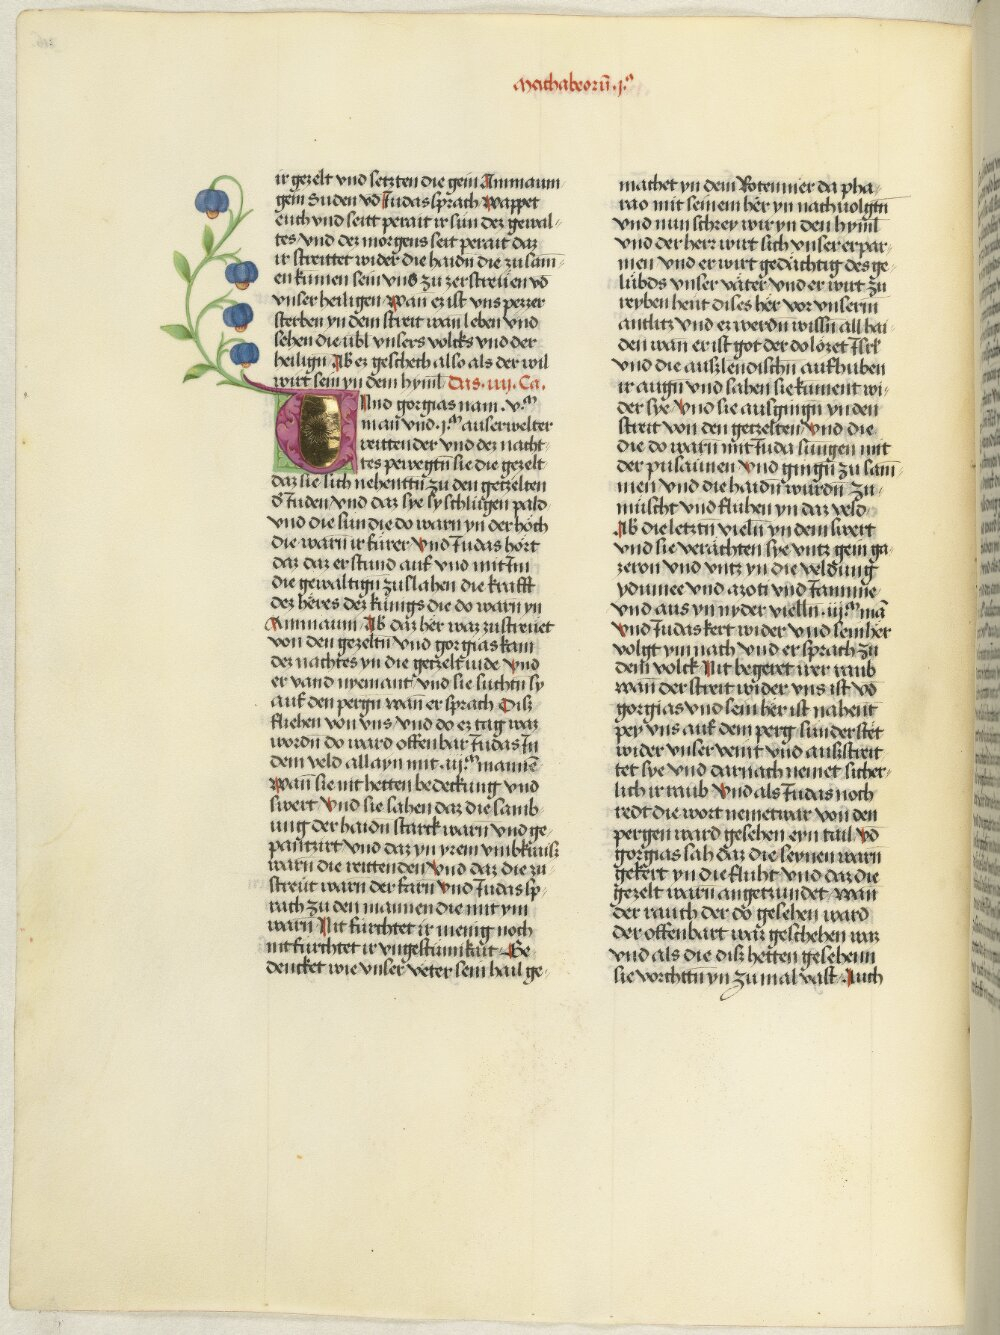 Machabeorū .j.ᵃ
ir gezelt vnd setzten die gein Ammaum
gein Suden vō Judas sprach Wappet
euch vnd seitt perait ir sün der gewal-
tes vnd der morgens seit perait daz
ir streittet wider die haidn die zu sam-
en kumen sein vns zu zerstreüen vō
vnser heiligen Wan ez ist vns pezzer
sterben yn dem streit wan leben vnd
sehen die übl vnsers volcks vnd der
heilign Ab ez geschech also als der wil
wirt sein yn dem hyml Das .iiij. Ca.
Und gorgias nam .v.ᵐ
man vnd .j.ᵐ auserwelter
reittender vnd dez nacht-
tes pewegtn sie die gezelt
daz sie sich nehenttn zu den getzelten
d Juden vnd daz sye sy schlugen pald
vnd die sün die do warn yn der höch
die warn ir fürer Vnd Judas hört
daz daz er stund auf vnd mit Im
die gewaltign zu slahen die krafft
dez heres dez künigs die do warn yn
Ammaum Ab daz her waz zustreuet
von den gezeltn vnd gorgias kam
dez nachtes yn die getzelt iude Vnd
er vand nyemant vnd sie suchtn sy
auf den pergn wan er sprach Diß
fliehen von vns vnd do ez tag waz
wordn do ward offenbar Judas In
dem veld allayn mit .iij.ᵐ mannē
Wan sie nit hetten bedeckung vnd
swert Vnd sie sahen daz die samb
ung der haidn starck warn vnd ge-
pantzirt vnd daz yn yrem vmbkraiß
warn die reittenden Vnd daz die zu
streüt warn der farn Vnd Judas sp-
rach zu den mannen die mit ym
warn Nit fürchtet ir menig noch
nit fürchtet ir vngestümikait Ge
dencket wie vnser veter sein hail ge-
machet yn dem Rotenmer da pha-
rao mit seinem her yn nachuolgtn
vnd nun schrey wir yn den hyml
vnd der herr wirt sich vnser erpar-
men vnd er wirt gedächtig des ge-
lübds vnser väter vnd er wirt zu
reyben heut dises her vor vnserm
antlitz vnd ez werdn wissn all hai-
den wan er ist got der do lözet Isrl
vnd die außlendischn aufhuben
ir augn vnd sahen sie kument wi-
der sye Vnd sie ausgingn yn den
streit von den getzelten Vnd die
die do warn mit Juda sungen mit
der pusaunen Vnd gingn zu sam-
men vnd die haidn wurdn zu-
müscht vnd fluhen yn daz veld
Ab die letztn vieln yn dem swert
vnd sie verächten sye vntz gein ga-
zeron vnd vntz yn die veldung
ydumee vnd azoti vnd Jamnie
vnd aus yn nyder vielln .iij.ᵐ mā
Vnd Judas kert wider vnd sein her
volgt ym nach vnd er sprach zu
dem volck Nit begeret iwer raub
wan der streit wider vns ist vō
gorgias vnd sein her ist nahent
pey vns auf dem perg sunder stet
wider vnser veint vnd außstreit
tet sye vnd darnach nemet sicher-
lich ir raub Vnd als Judas noch
redt die wort nemetwar von den
pergen ward gesehen eyn tail Vō
gorgias sah daz die seynen warn
gekert yn die fluht vnd daz die
gezelt warn angetzundet Wan
der rauch der do gesehen ward
der offenbart waz geschehen waz
vnd als die diß hetten gesehenn
sie vorchttn yn zu mal vast Auch